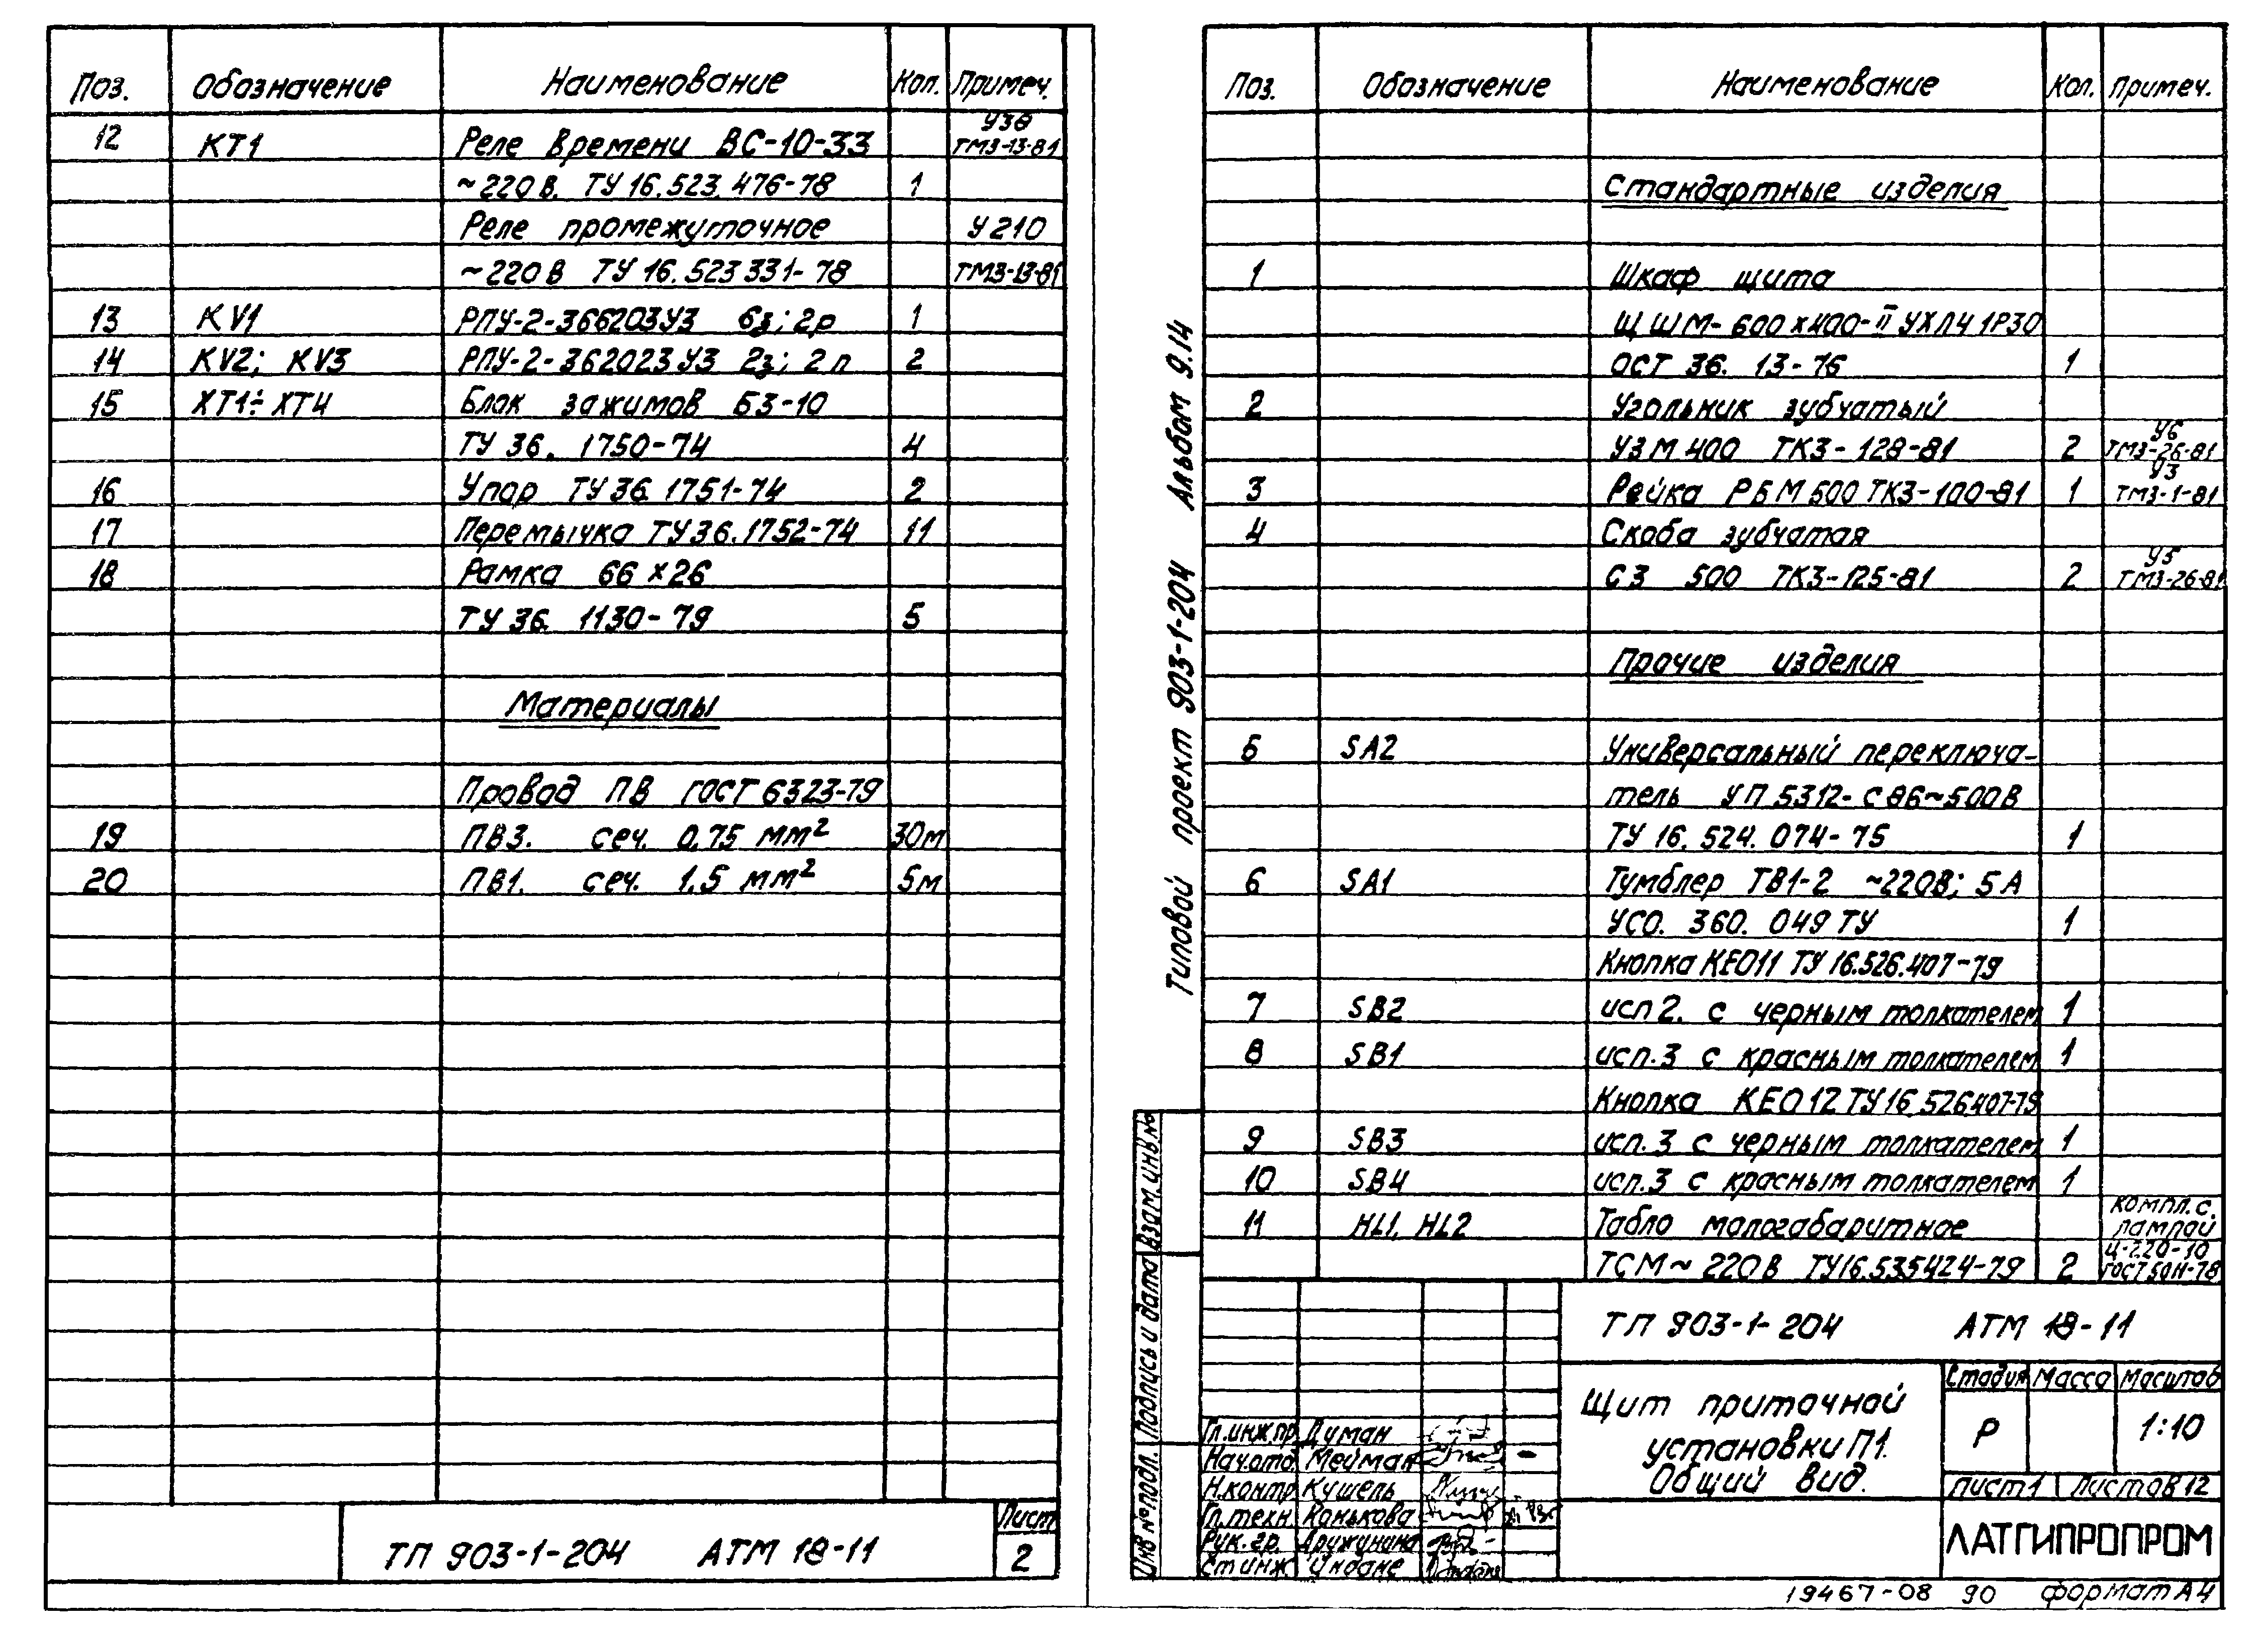 Поз. Обозначение Наименование Кол. Примеч.
12 КТ1 Реле времени ВС-10-33 У30 ТМ3-13-81
~220В. ТУ 16.523.476-78 1
Реле промежуточное У210
~220В ТУ 16.523 331-78 ТМ3-13-81
13 KV1 РПУ-2-366203У3 6з; 2р 1
14 KV2; KV3 РПУ-2-362023 У3 2з; 2п 2
15 ХТ1÷ХТ4 Блок зажимов БЗ-10
ТУ 36. 1750-74 4
16 Упор ТУ 36 1751-74 2
17 Перемычка ТУ 36.1752-74 11
18 Рамка 66×26
ТУ 36 1130-79 5
Материалы
Провод ПВ ГОСТ 6323-79
19 ПВ3. сеч. 0,75 мм² 30м
20 ПВ1. сеч. 1.5 мм² 5м
ТП 903-1-204 АТМ 18-11
Лист
2
Типовой проект 903-1-204 Альбом 9.14
Поз. Обозначение Наименование Кол. Примеч.
Стандартные изделия
1 Шкаф щита
ЩШМ-600×400-II УХЛ4 1Р30
ОСТ 36. 13-76 1
2 Угольник зубчатый
УЗМ 400 ТК3-128-81 2 У6 ТМ3-26-81
3 Рейка РБМ 500 ТК3-100-81 1 У3 ТМ3-1-81
4 Скоба зубчатая
СЗ 500 ТК3-125-81 2 У5 ТМ3-26-81
Прочие изделия
5 SA2 Универсальный переключа-
тель УП 5312-С86~500В
ТУ 16. 524. 074-75 1
6 SA1 Тумблер ТВ1-2 ~220В; 5А
УСО. 360. 049 ТУ 1
Кнопка КЕ011 ТУ 16.526.407-79
7 SB2 исп 2. с черным толкателем 1
8 SB1 исп.3 с красным толкателем 1
Кнопка КЕ012 ТУ 16 526407-79
9 SB3 исп. 3 с черным толкателем 1
10 SB4 исп.3 с красным толкателем 1
11 HL1, HL2 Табло малогабаритное компл. с. лампой
ТСМ~220В ТУ16.535424-79 2 Ц-220-10 ГОСТ5011-78
Инв №подл. Подпись и дата Взам. инв.№
ТП 903-1-204 АТМ 18-11
Щит приточной
установки П1.
Общий вид.
Стадия Масса Масштаб
Р 1:10
Лист 1 Листов 12
ЛАТГИПРОПРОМ
Гл.инж.пр. Думан
Нач.отд. Мейман
Н.контр. Кушель
Гл.техн. Конькова
Рук.гр. Дружинина
Ст инж.
19467-08 90 формат А4